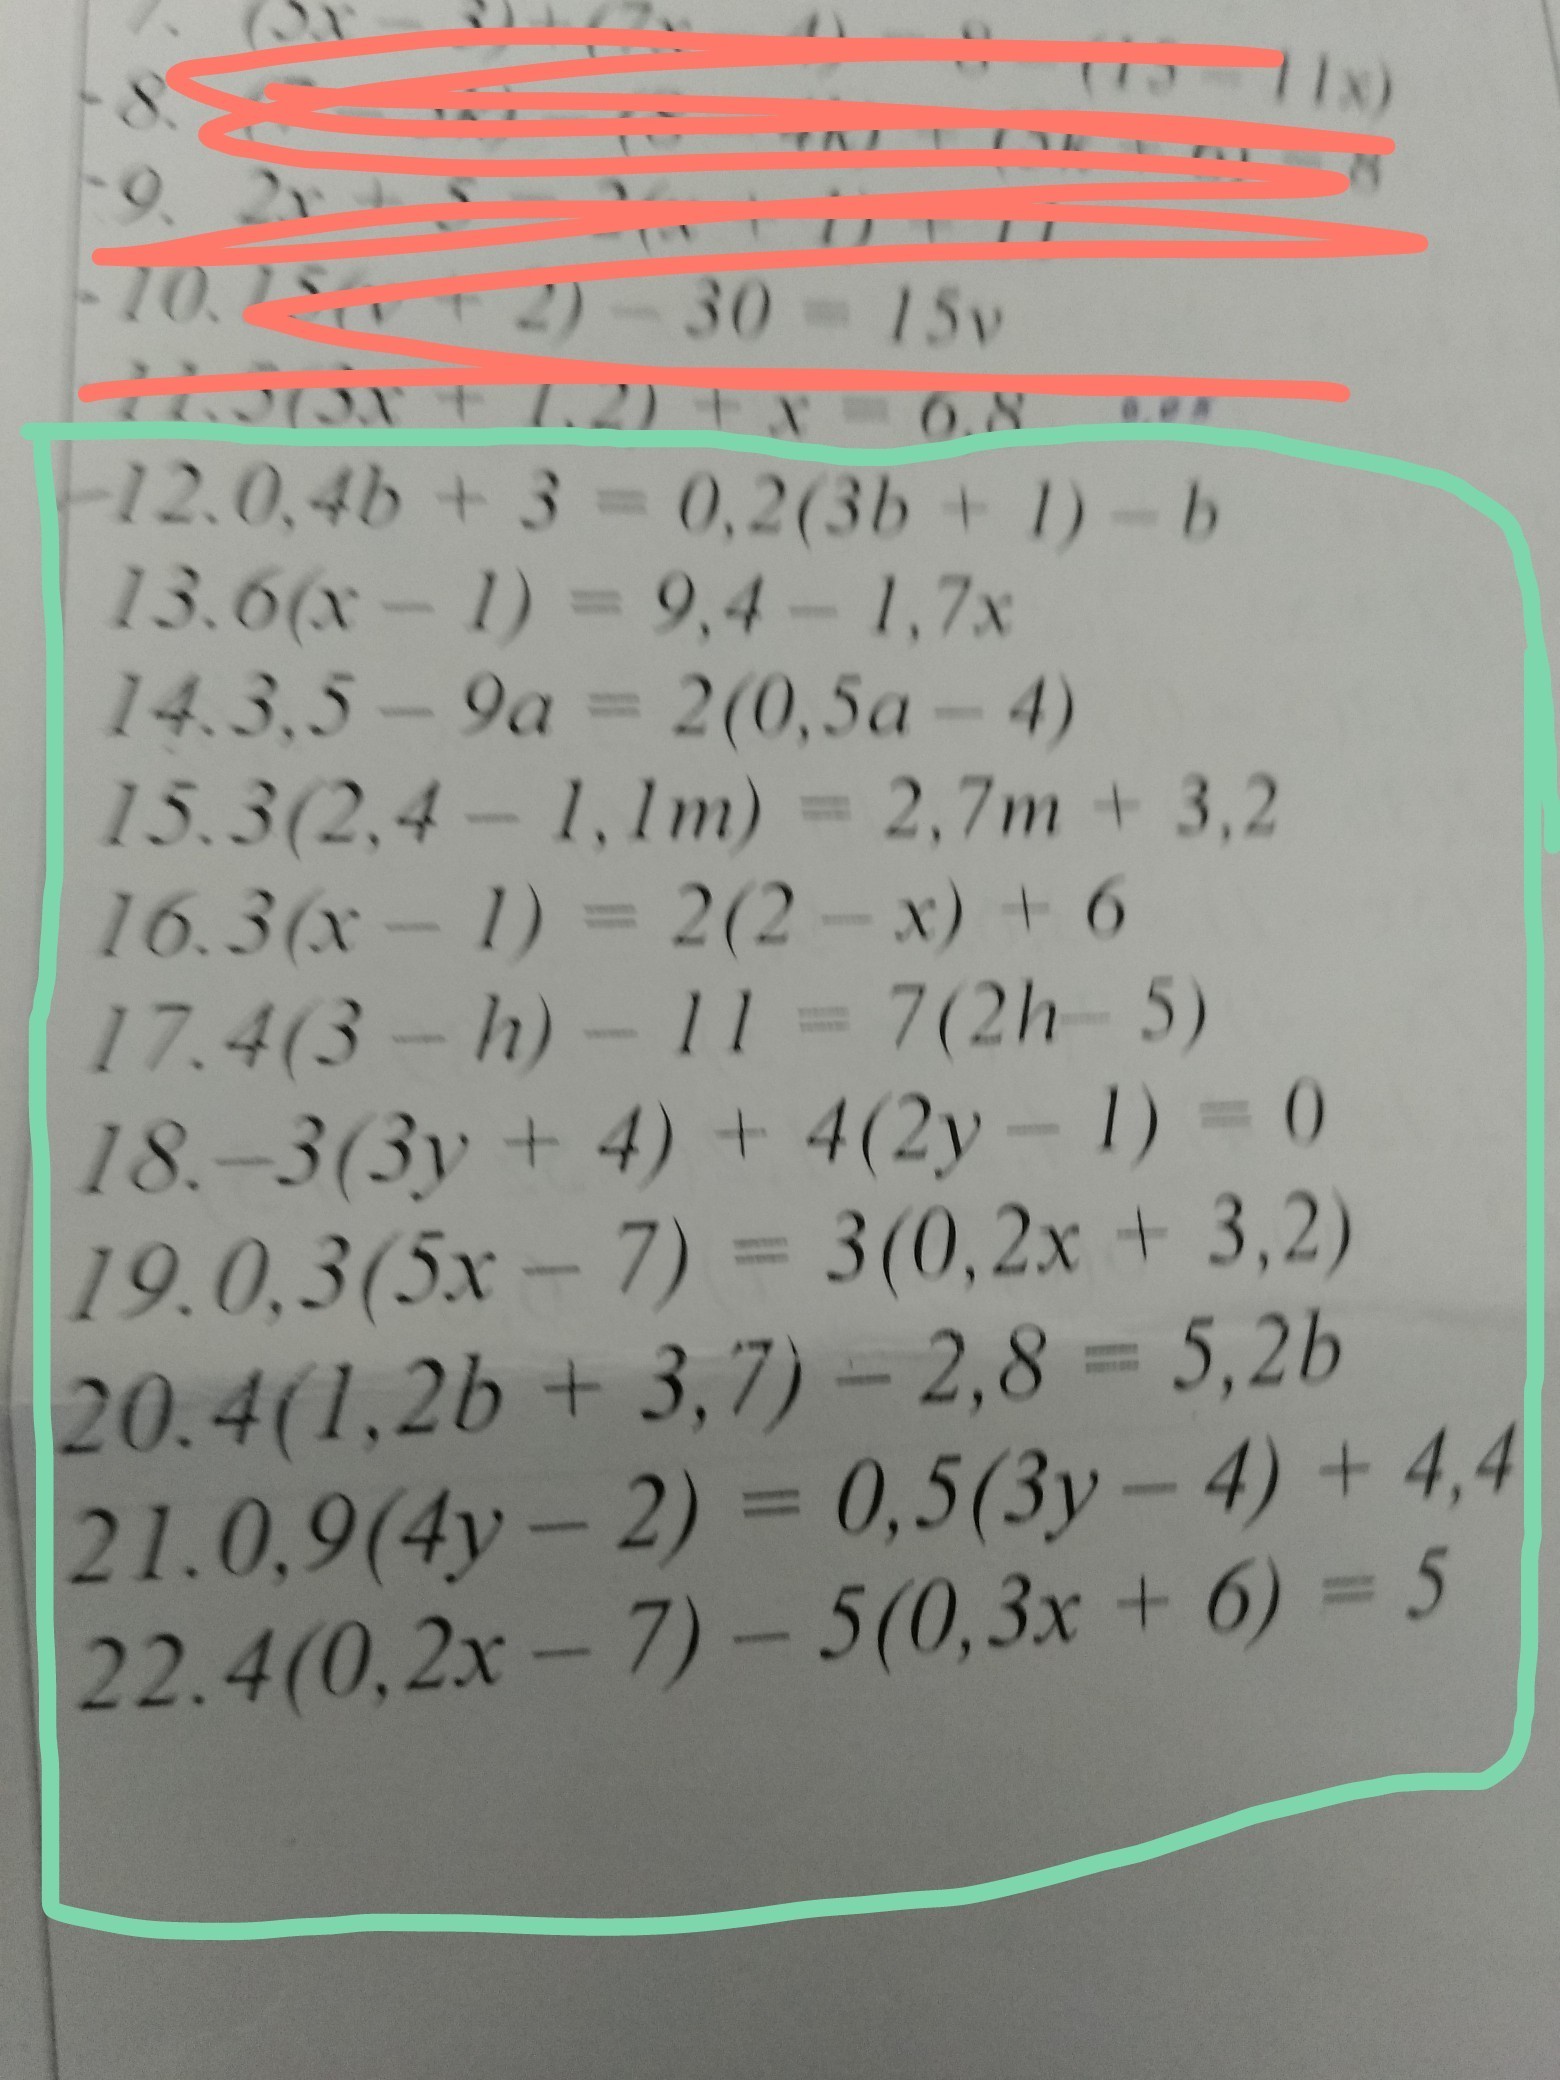 7. (5x − 3) + (7x − 4) = 8 − (15 − 11x)
-8. = 8
-9. 2x + 5 = 2(x + 1) + 11
-10. 15(v + 2) − 30 = 15v
11. 3(3x + 1.2) + x = 6.8
-12. 0,4b + 3 = 0,2(3b + 1) − b
13. 6(x − 1) = 9,4 − 1,7x
14. 3,5 − 9a = 2(0,5a − 4)
15. 3(2,4 − 1,1m) = 2,7m + 3,2
16. 3(x − 1) = 2(2 − x) + 6
17. 4(3 − h) − 11 = 7(2h − 5)
18. −3(3y + 4) + 4(2y − 1) = 0
19. 0,3(5x − 7) = 3(0,2x + 3,2)
20. 4(1,2b + 3,7) − 2,8 = 5,2b
21. 0,9(4y − 2) = 0,5(3y − 4) + 4,4
22. 4(0,2x − 7) − 5(0,3x + 6) = 5